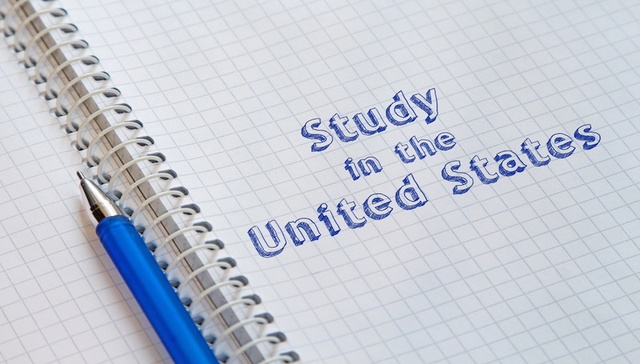 Study
in the
United States